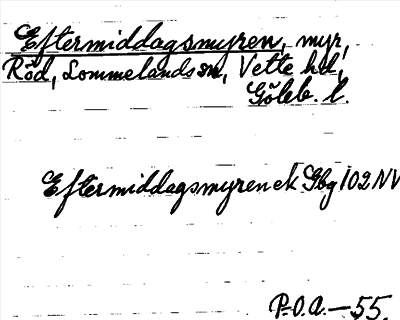 Eftermiddagsmyren, myr,
Röd, Lommelands sn, Vette hd,
Göteb. l.
Eftermiddagsmyren ek Gbg 102 NV
P.O.A. – 55.